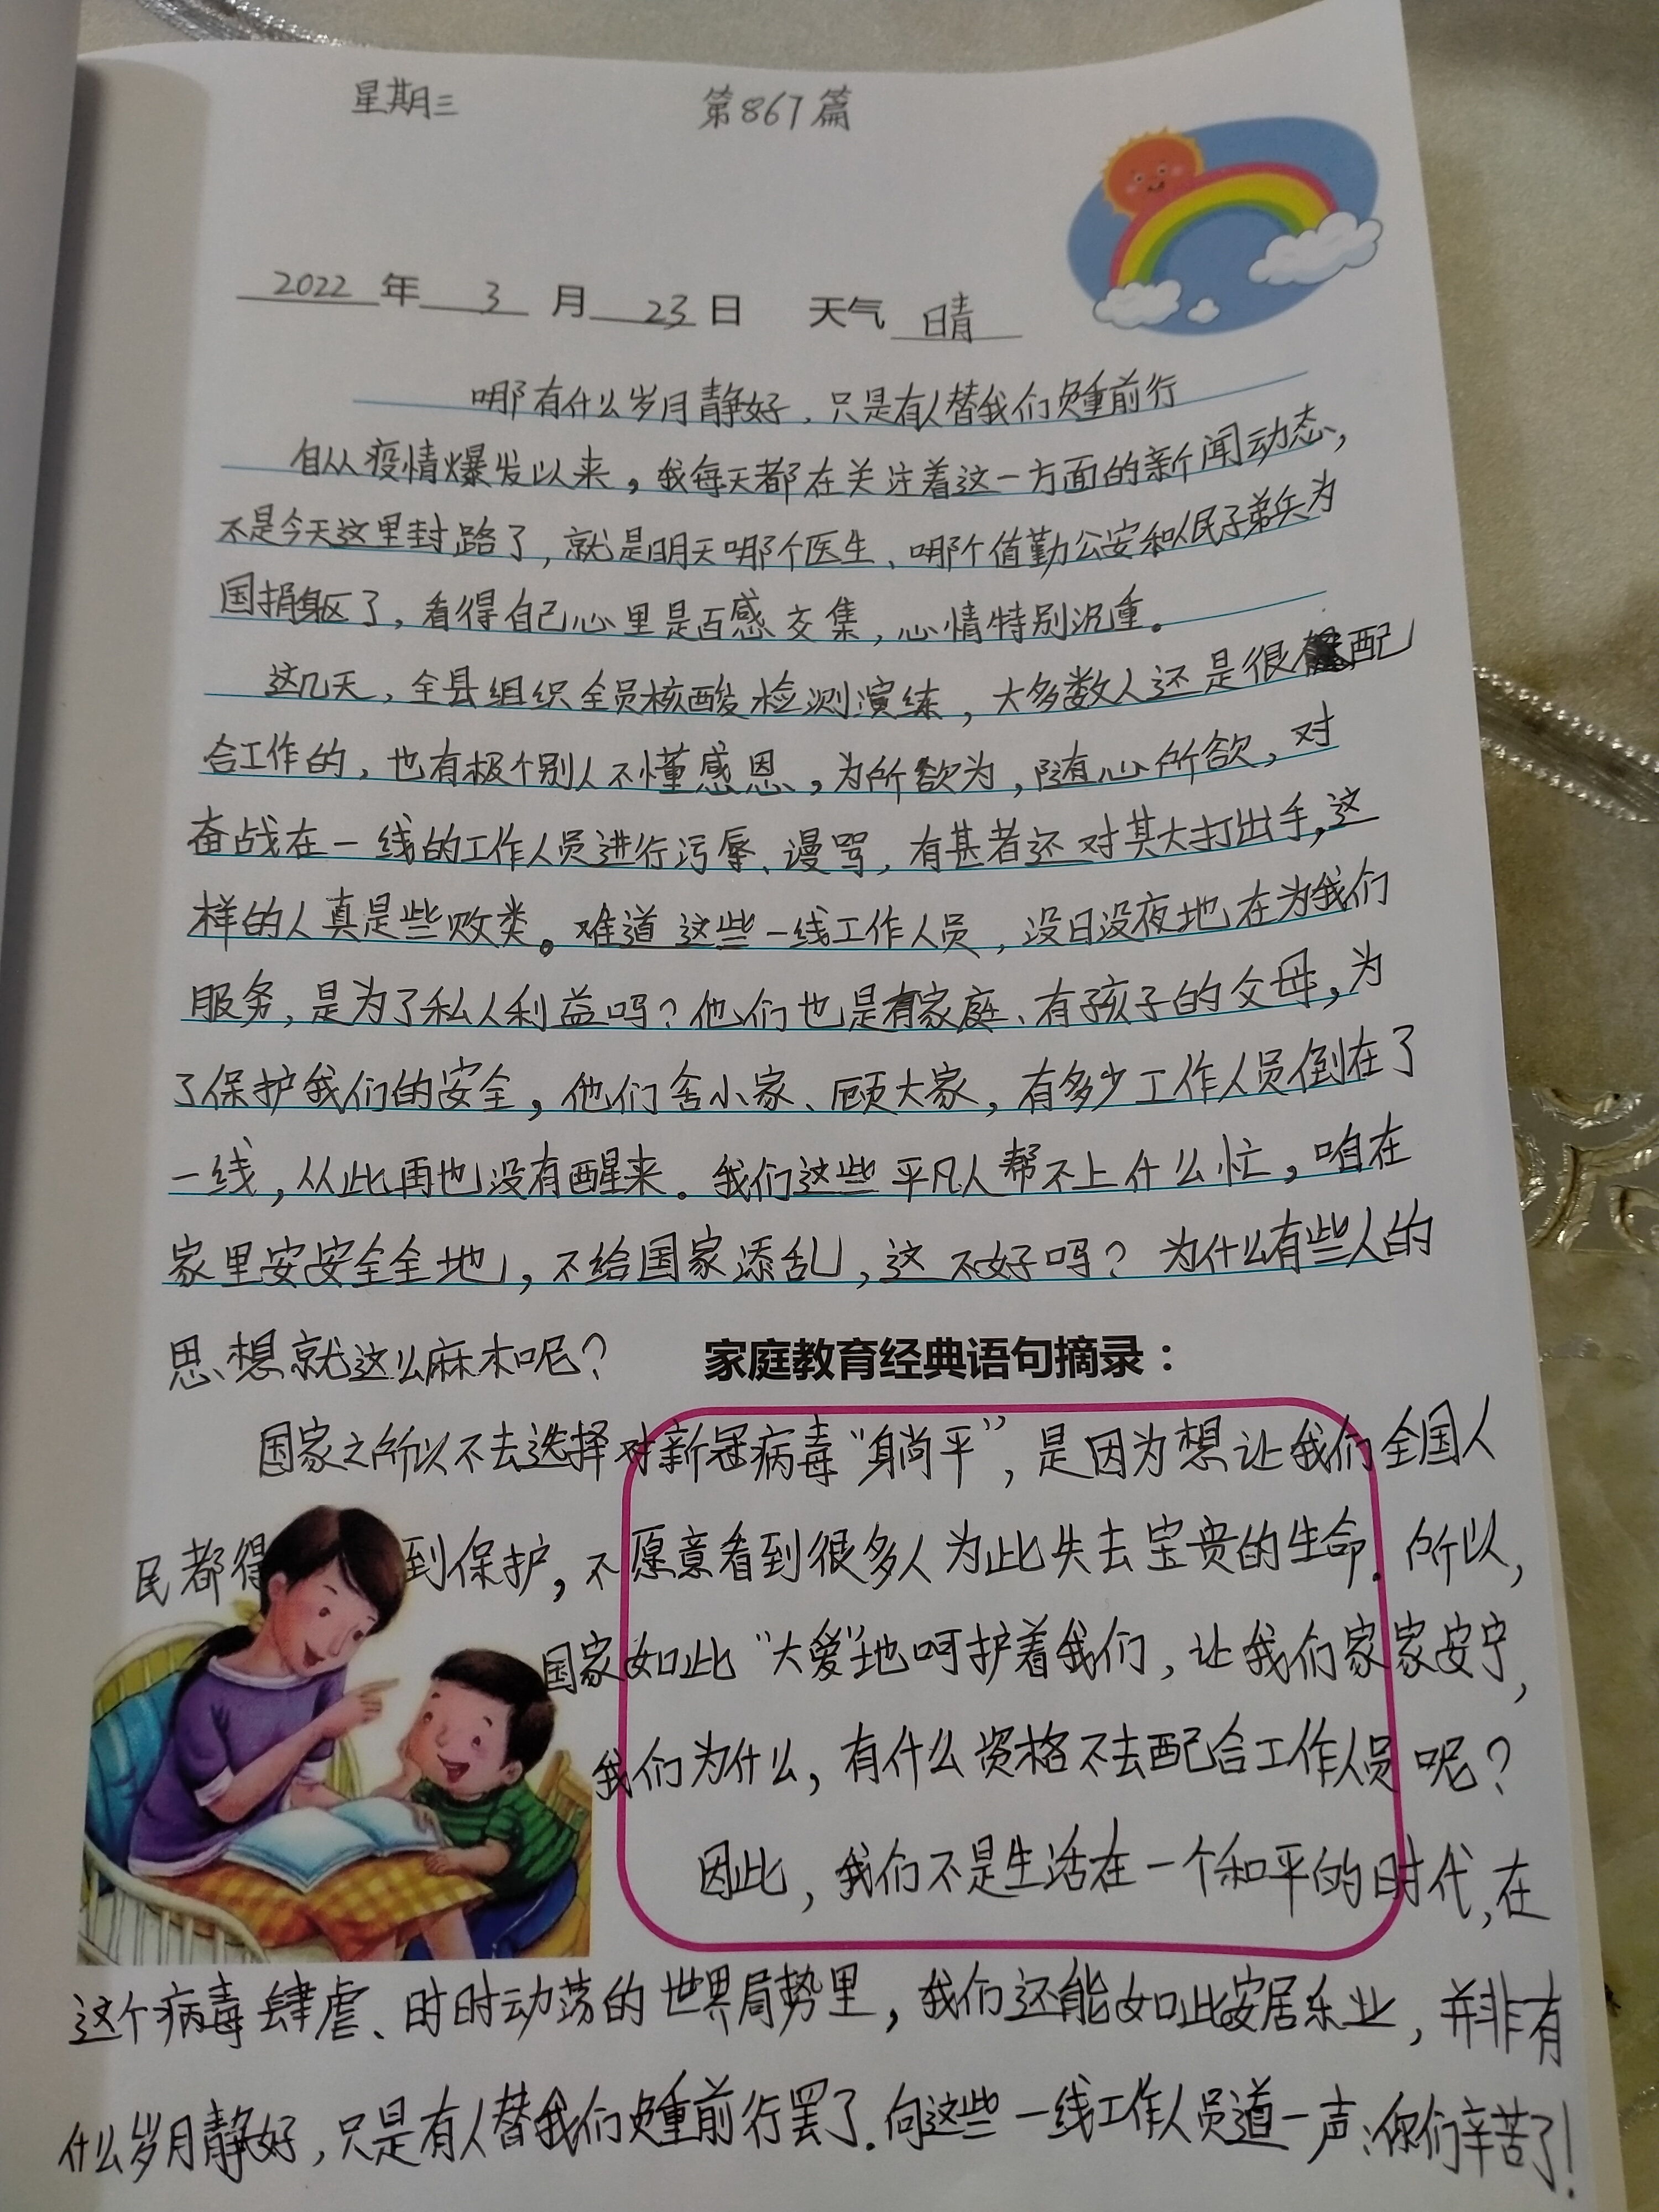 星期三 第867篇
2022年3月23日 天气 晴
哪有什么岁月静好,只是有人替我们负重前行
自从疫情爆发以来,我每天都在关注着这一方面的新闻动态,
不是今天这里封路了,就是明天哪个医生、哪个值勤公安和人民子弟兵为
国捐躯了,看得自己心里是百感交集,心情特别沉重。
这几天,全县组织全员核酸检测演练,大多数人还是很配
合工作的,也有极个别人不懂感恩,为所欲为,随心所欲,对
奋战在一线的工作人员进行污辱、谩骂,有甚者还对其大打出手,这
样的人真是些败类。难道这些一线工作人员,没日没夜地在为我们
服务,是为了私人利益吗?他们也是有家庭、有孩子的父母,为
了保护我们的安全,他们舍小家、顾大家,有多少工作人员倒在了
一线,从此再也没有醒来。我们这些平凡人帮不上什么忙,咱在
家里安安全全地,不给国家添乱,这不好吗?为什么有些人的
思想就这么麻木呢? 家庭教育经典语句摘录:
国家之所以不去选择对新冠病毒“躺平”,是因为想让我们全国人
民都得到保护,不愿意看到很多人为此失去宝贵的生命.所以,
国家如此“大爱”地呵护着我们,让我们家家安宁,
我们为什么,有什么资格不去配合工作人员呢?
因此,我们不是生活在一个和平的时代,在
这个病毒肆虐、时时动荡的世界局势里,我们还能如此安居乐业,并非有
什么岁月静好,只是有人替我们负重前行罢了.向这些一线工作人员道一声:你们辛苦了!